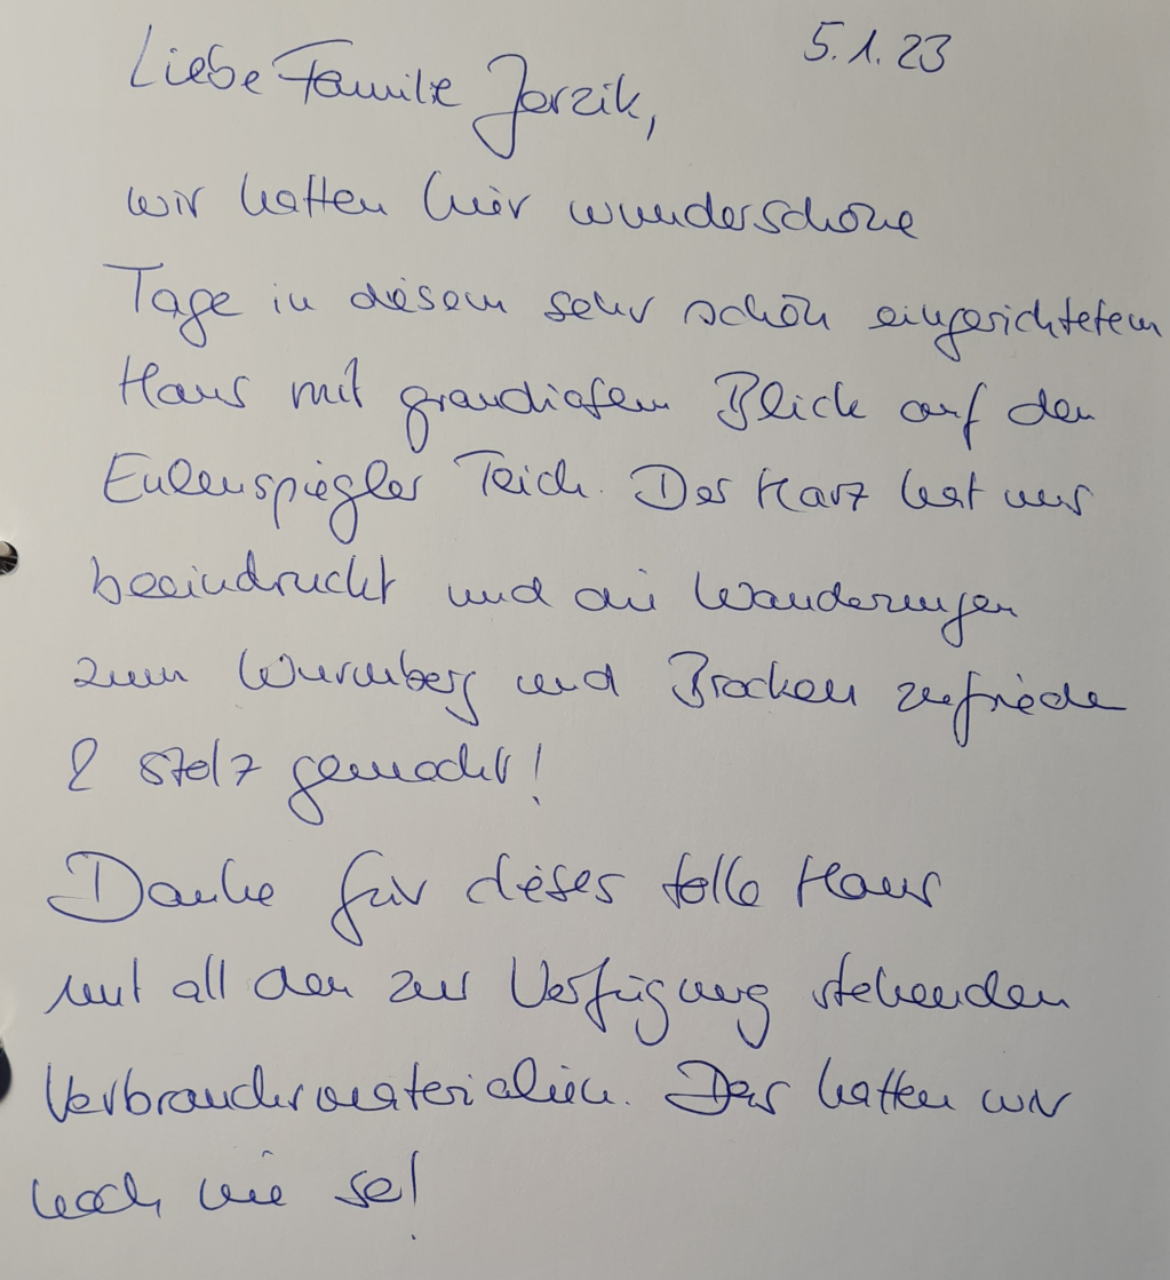 5.1.23
Liebe Familie Jarzik,
wir hatten hier wunderschöne
Tage in diesem sehr schön eingerichtetem
Haus mit grandiosem Blick auf den
Eulenspiegler Teich. Der Harz hat uns
beeindruckt und die Wanderungen
zum Wurmberg und Brocken zufrieden
& stolz gemacht!
Danke für dieses tolle Haus
mit all den zur Verfügung stehenden
Verbrauchsmaterialien. Das hatten wir
noch nie so!